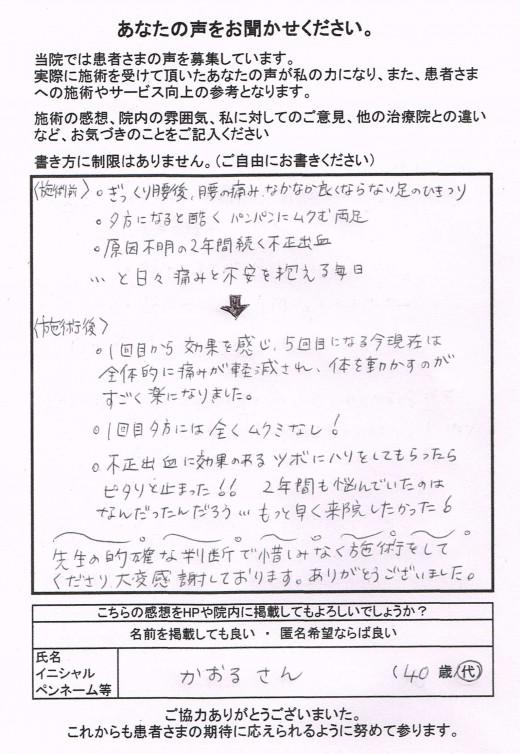 あなたの声をお聞かせください。
当院では患者さまの声を募集しています。
実際に施術を受けて頂いたあなたの声が私の力になり、また、患者さま
への施術やサービス向上の参考となります。
施術の感想、院内の雰囲気、私に対してのご意見、他の治療院との違い
など、お気づきのことをご記入ください
書き方に制限はありません。(ご自由にお書きください)
〈施術前〉 ○ぎっくり腰後、腰の痛み、なかなか良くならない足のひきつり
○夕方になると酷く パンパンにムクむ両足
○原因不明の2年間続く不正出血
… と日々 痛みと不安を抱える毎日
〈施術後〉
○1回目から 効果を感じ、5回目になる今現在は
全体的に痛みが軽減され、体を動かすのが
すごく楽になりました。
○1回目夕方には全くムクミなし!
○不正出血に効果のあるツボにハリをしてもらったら
ピタリと止まった!! 2年間も悩んでいたのは
なんだったんだろう… もっと早く来院したかった!
先生の的確な判断で惜しみなく施術をして
くださり大変感謝しております。ありがとうございました。
こちらの感想をHPや院内に掲載してもよろしいでしょうか?
名前を掲載しても良い ・ 匿名希望ならば良い
氏名
イニシャル
ペンネーム等
かおるさん (40 歳/代)
ご協力ありがとうございまいた。
これからも患者さまの期待に応えられるように努めて参ります。